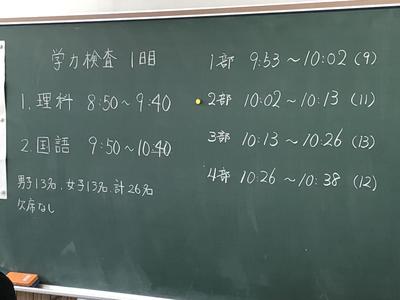 学力検査 1日目
1. 理科 8:50~9:40
2. 国語 9:50~10:40
男子13名、女子13名、計26名
欠席なし
1部 9:53~10:02 (9)
2部 10:02~10:13 (11)
3部 10:13~10:26 (13)
4部 10:26~10:38 (12)